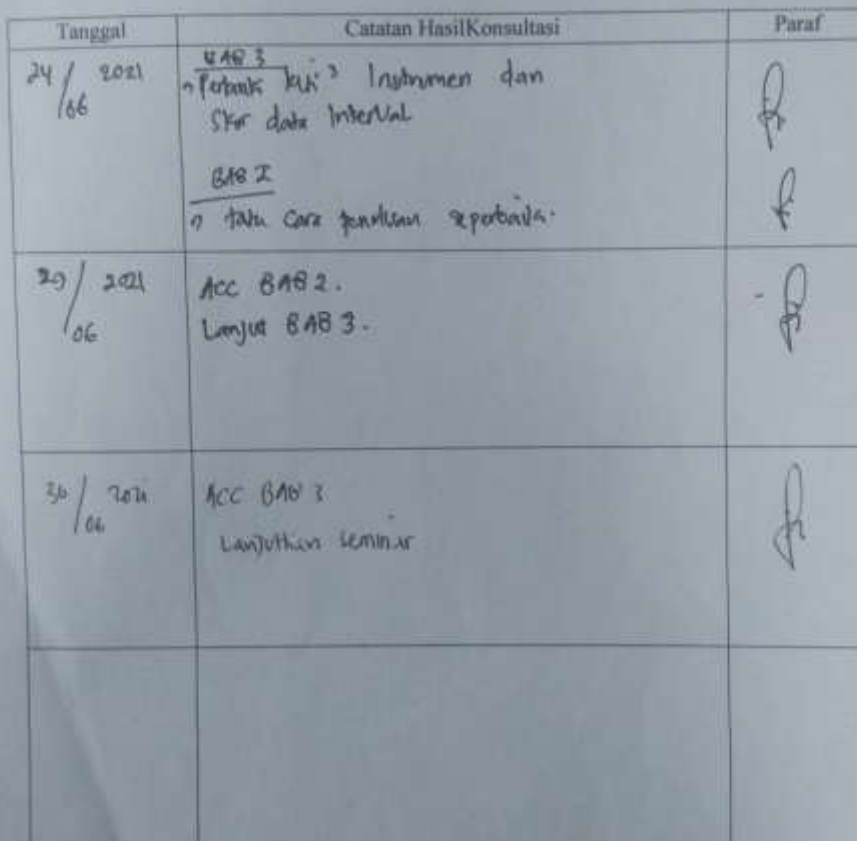 Tanggal Catatan HasilKonsultasi Paraf
24/06 2021
BAB 3
Instrumen dan
Skor data Interval
BAB I
tata cara penulisan
29/06 2021
ACC BAB 2.
Lanjut BAB 3.
30/06 2021
ACC BAB 3
Lanjutkan seminar